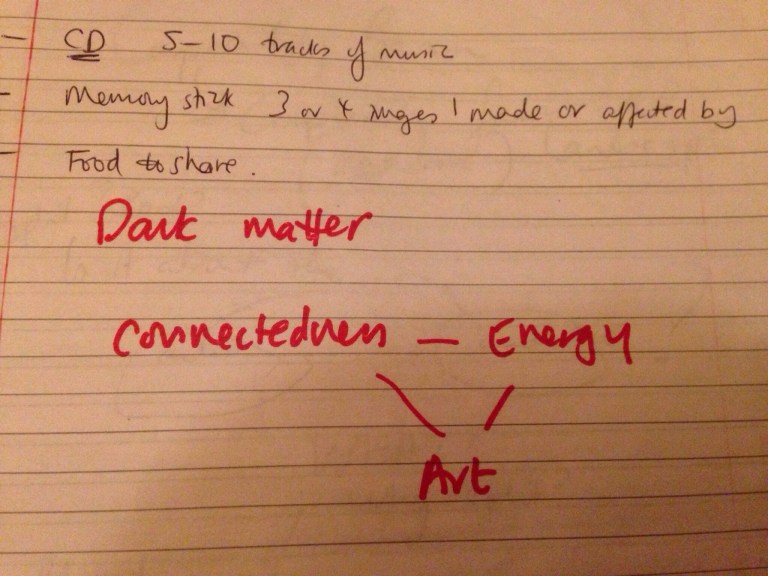 - CD 5-10 tracks of music
- Memory stick 3 or 4 images I made or affected by
- Food to share.
Dark matter
Connectedness — Energy
Art